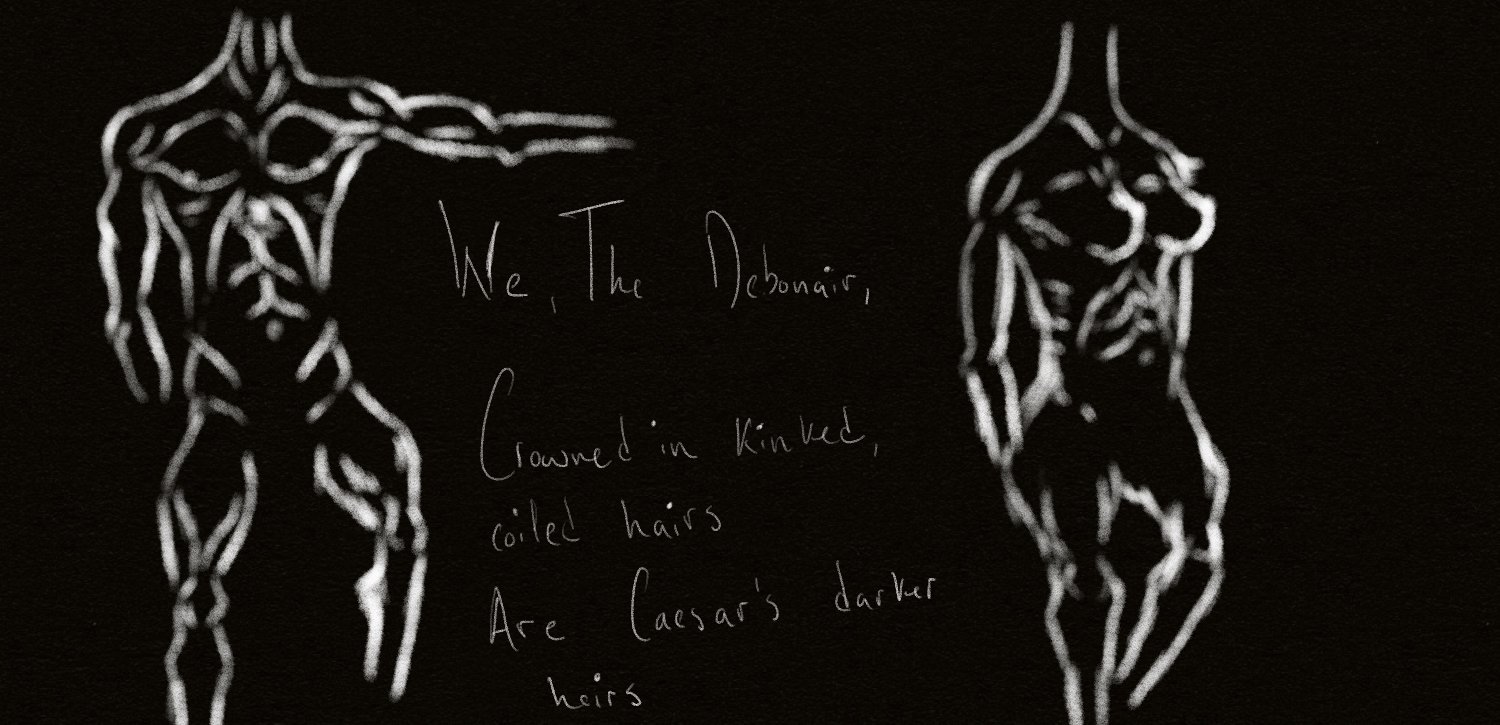 We, The Debonair,
Crowned in kinked,
coiled hairs
Are Caesar's darker
heirs